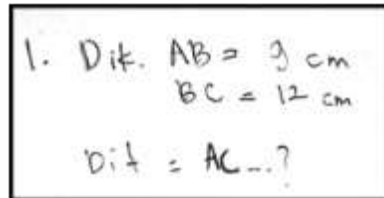 1. Dik. AB = 9 cm
BC = 12 cm
Dit = AC...?